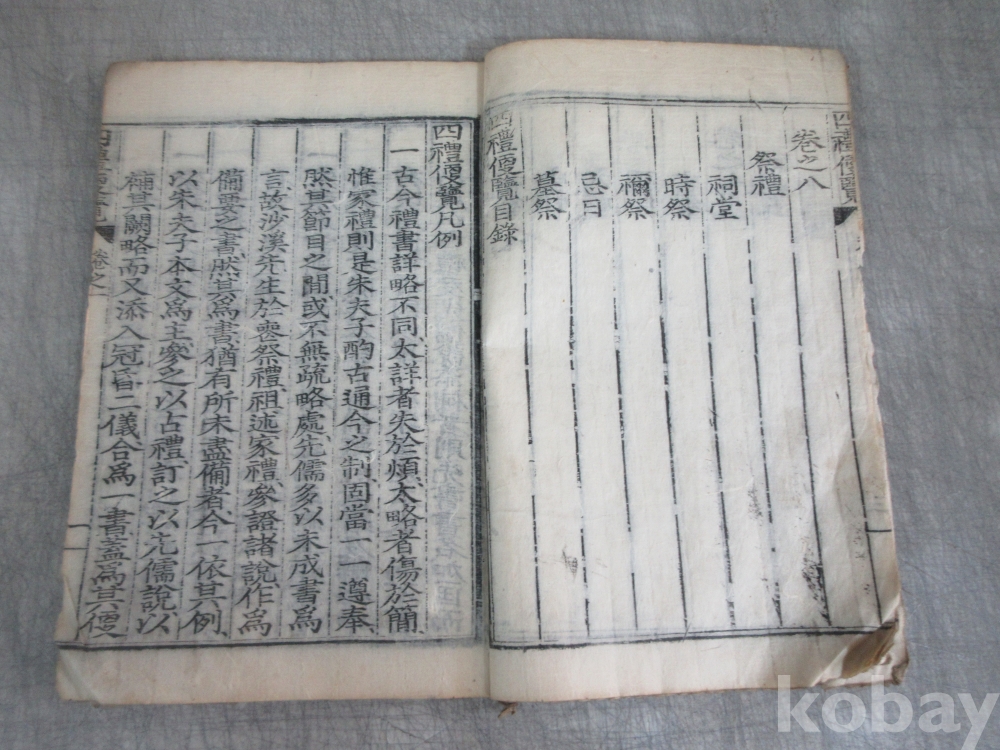 四禮便覽
卷之八
祭禮
祠堂
時祭
禰祭
忌日
墓祭
四禮便覽目錄
四禮便覽凡例
一古今禮書詳略不同太詳者失於煩太略者傷於簡
惟家禮則是朱夫子酌古通今之制固當一一遵奉
然其節目之間或不無疏略處先儒多以未成書爲
言故沙溪先生於喪祭禮祖述家禮參證諸說作爲
備要之書然其爲書猶有所未盡備者今一依其例
以朱夫子本文爲主參之以古禮訂之以先儒說以
補其闕略而又添入冠昏二儀合爲一書蓋爲其便
卷之一
kobay